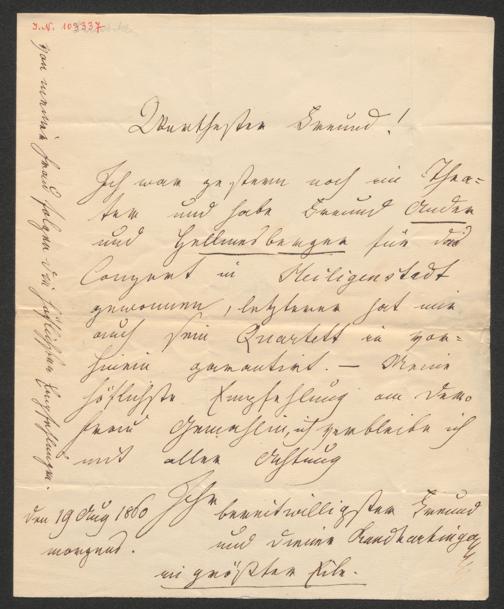 I.N. 103337
Werthester Freund!
Ich war gestern noch im Thea-
ter und habe Freund Ander
und Hellmesberger für das
Conzert in Heiligenstadt
gewonnen, letzterer hat mir
auch sein Quartett in vor-
hinein garantirt. — Meine
höflichste Empfehlung an Dero
Frau Gemahlin, ich verbleibe ich
mit aller Achtung
Ihr
bereitwilligster Freund
und Diener Randhartinger
in größter Eile.
den 19 Aug 1860
morgens.
von meiner Frau folgen die höflichsten Empfehlungen.